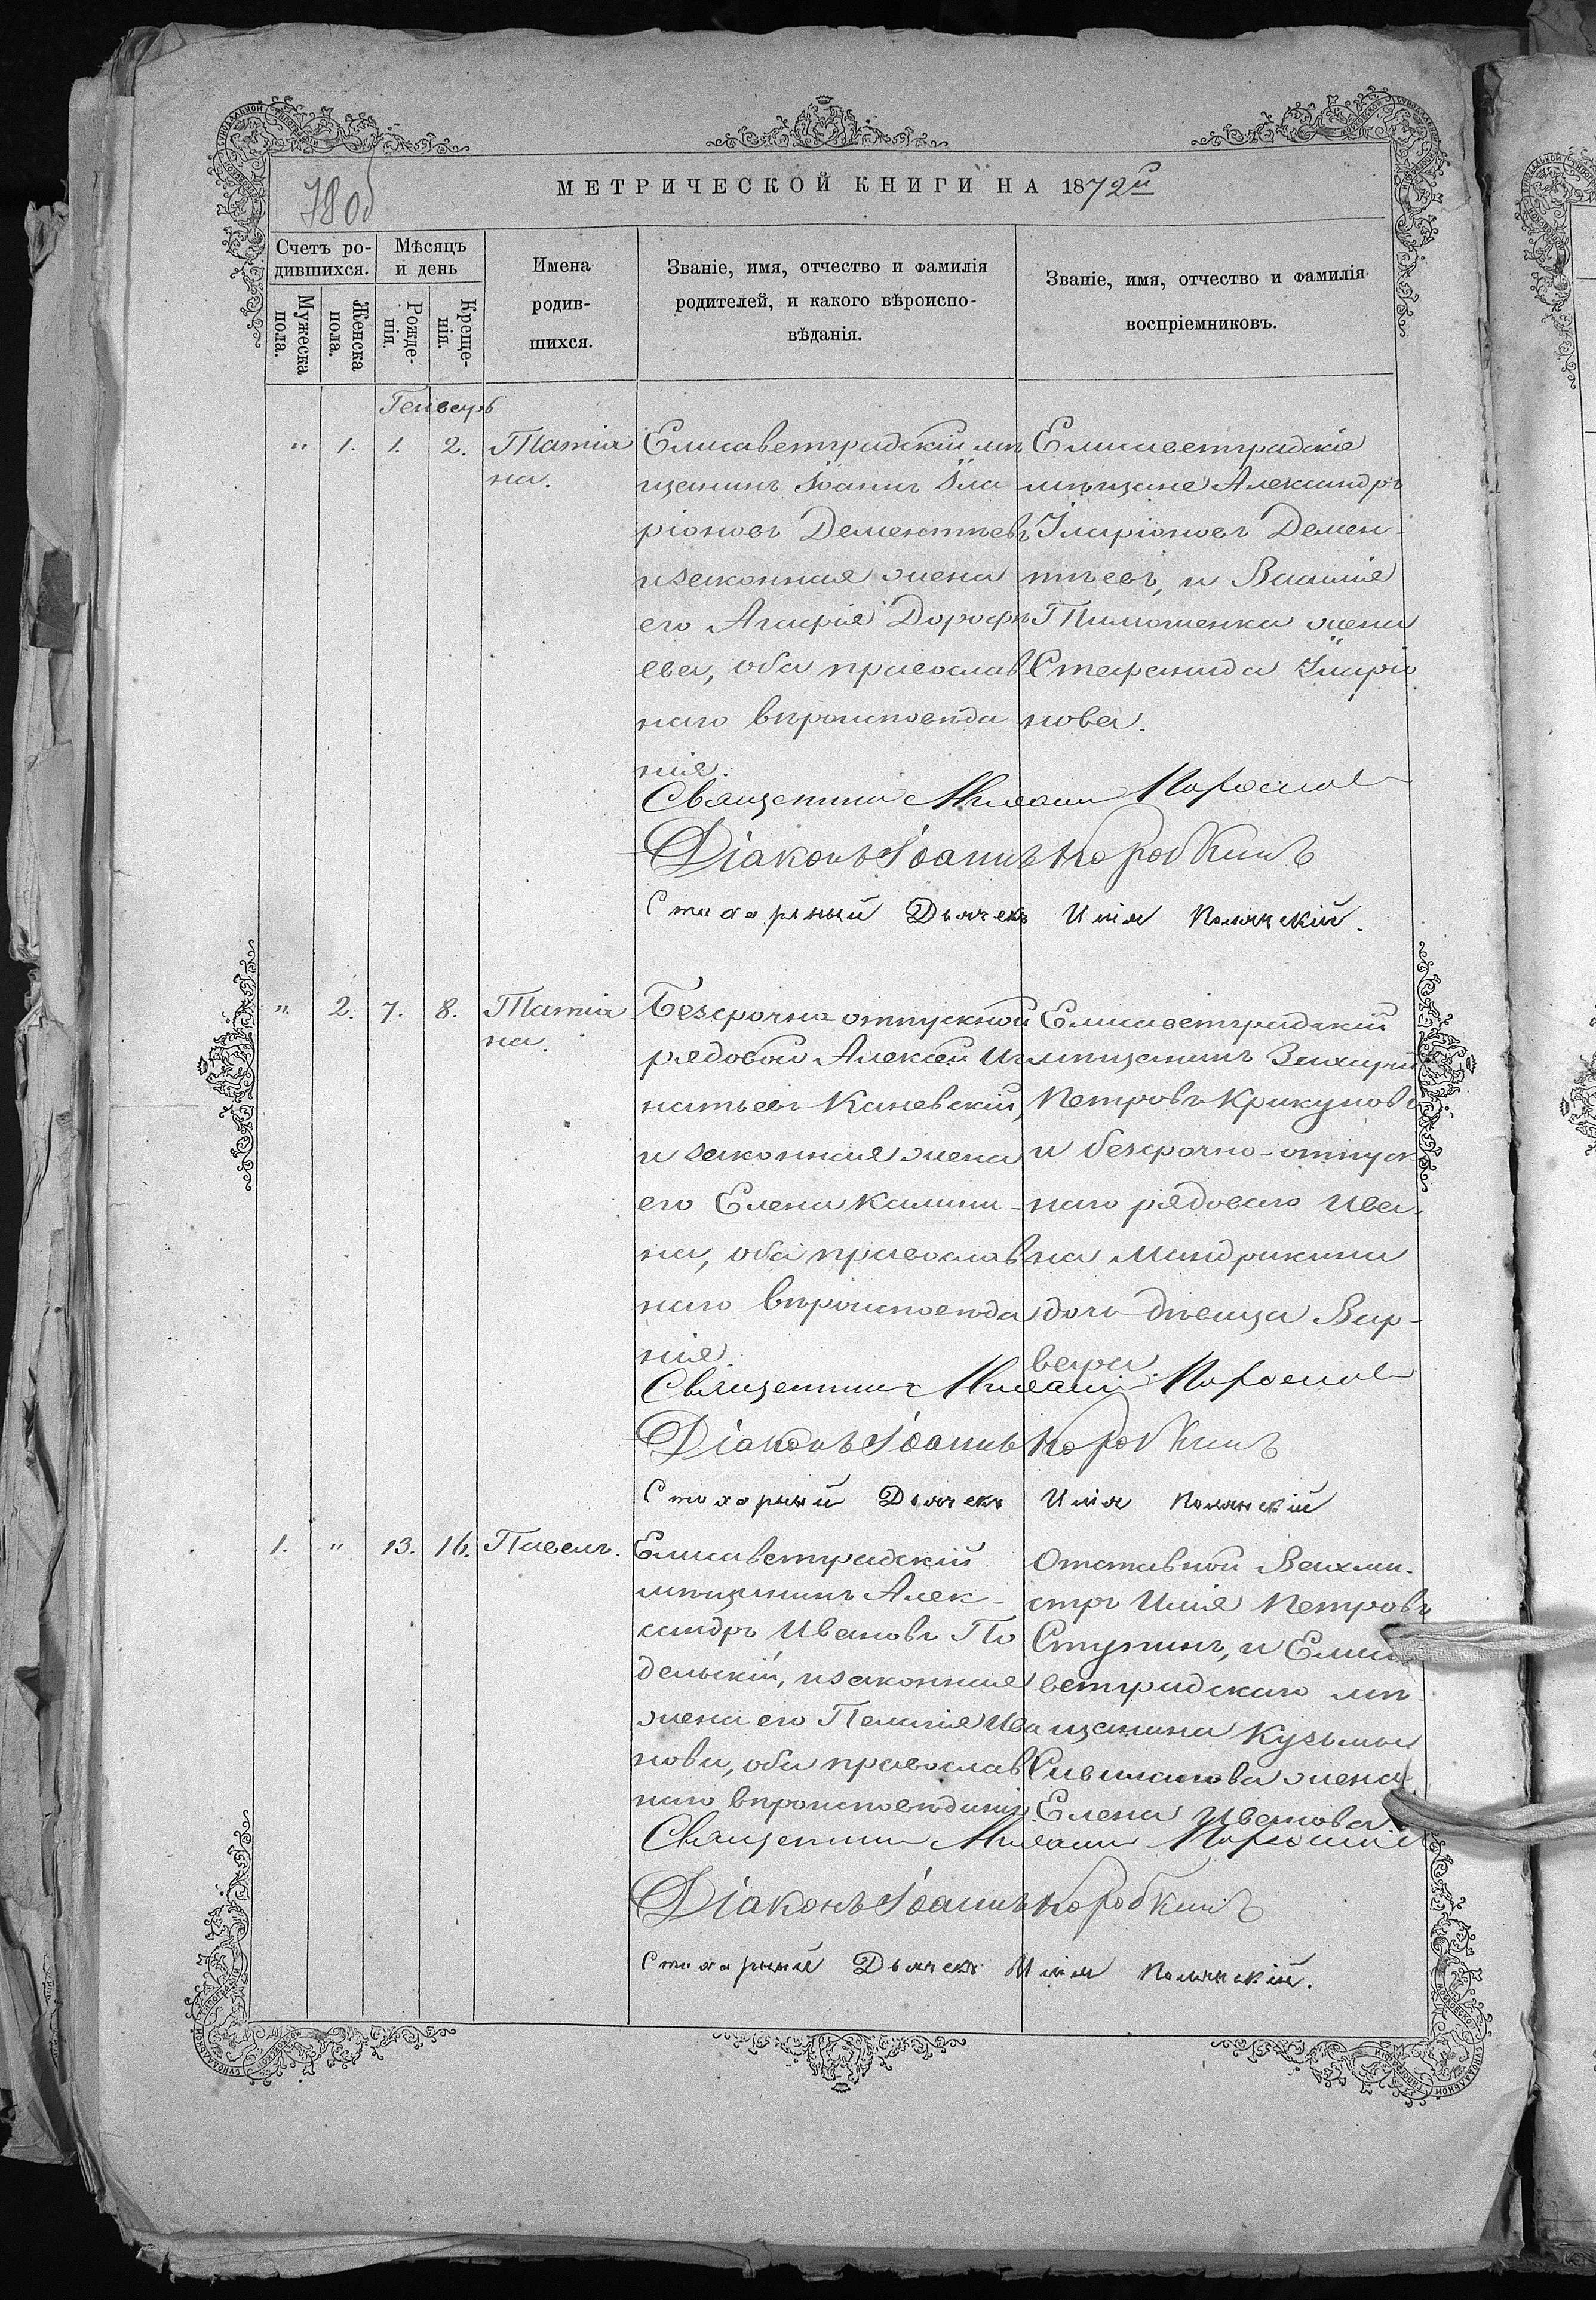 780б
МЕТРИЧЕСКОЙ КНИГИ НА 1872й
Счетъ ро-
дившихся.
Мѣсяцъ
и день
Имена
родив-
шихся.
Званіе, имя, отчество и фамилія
родителей, и какого вѣроиспо-
вѣданія.
Званіе, имя, отчество и фамилія
воспріемниковъ.
Мужеска
пола.
Женска
пола.
Рожде-
нія.
Креще-
нія.
Генварь
" 1. 1. 2. Татіа
на.
Елисаветградскій мѣ
щанинъ Іоаннъ Ила
ріоновъ Дементьевъ
и законная жена
его Агафія Дорофѣ
ева, оба православ
наго вѣроисповѣда
нія.
Елисаветградскіе
мѣщане Александръ
Иларіоновъ Демен-
тьевъ, и Василія
Тимошенка жена
Стефанида Иларіо
нова.
Священникъ
Діаконъ Іоаннъ Коробкинъ
Стихарный Дьячекъ Илія Полянскій.
" 2. 7. 8. Татіа
на.
Безсрочно отпускной
рядовой Алексѣй Иг
натьевъ Каневскій,
и законная жена
его Елена Калини-
на, оба православ
наго вѣроисповѣда
нія.
Елисаветградскій
мѣщанинъ Захарій
Петровъ Крикуновъ
и безсрочно-отпуск
наго рядоваго Ива-
на Мандрыкина
дочь дѣвица Вар-
вара.
Священникъ
Діаконъ Іоаннъ Коробкинъ
Стихарный Дьячекъ Илія Полянскій
1. " 13. 16. Павелъ.
Елисаветградскій
мѣщанинъ Алек-
сандръ Ивановъ По
дольскій, и законная
жена его Пелагія Ива
нова, оба православ
наго вѣроисповѣданія.
Отставной Вахми-
стръ Илія Петровъ
Ступинъ, и Елиса
ветградскаго мѣ-
щанина Кузьмы
жена
Елена Иванова.
Священникъ
Діаконъ Іоаннъ Коробкинъ
Стихарный Дьячекъ Илія Полянскій.